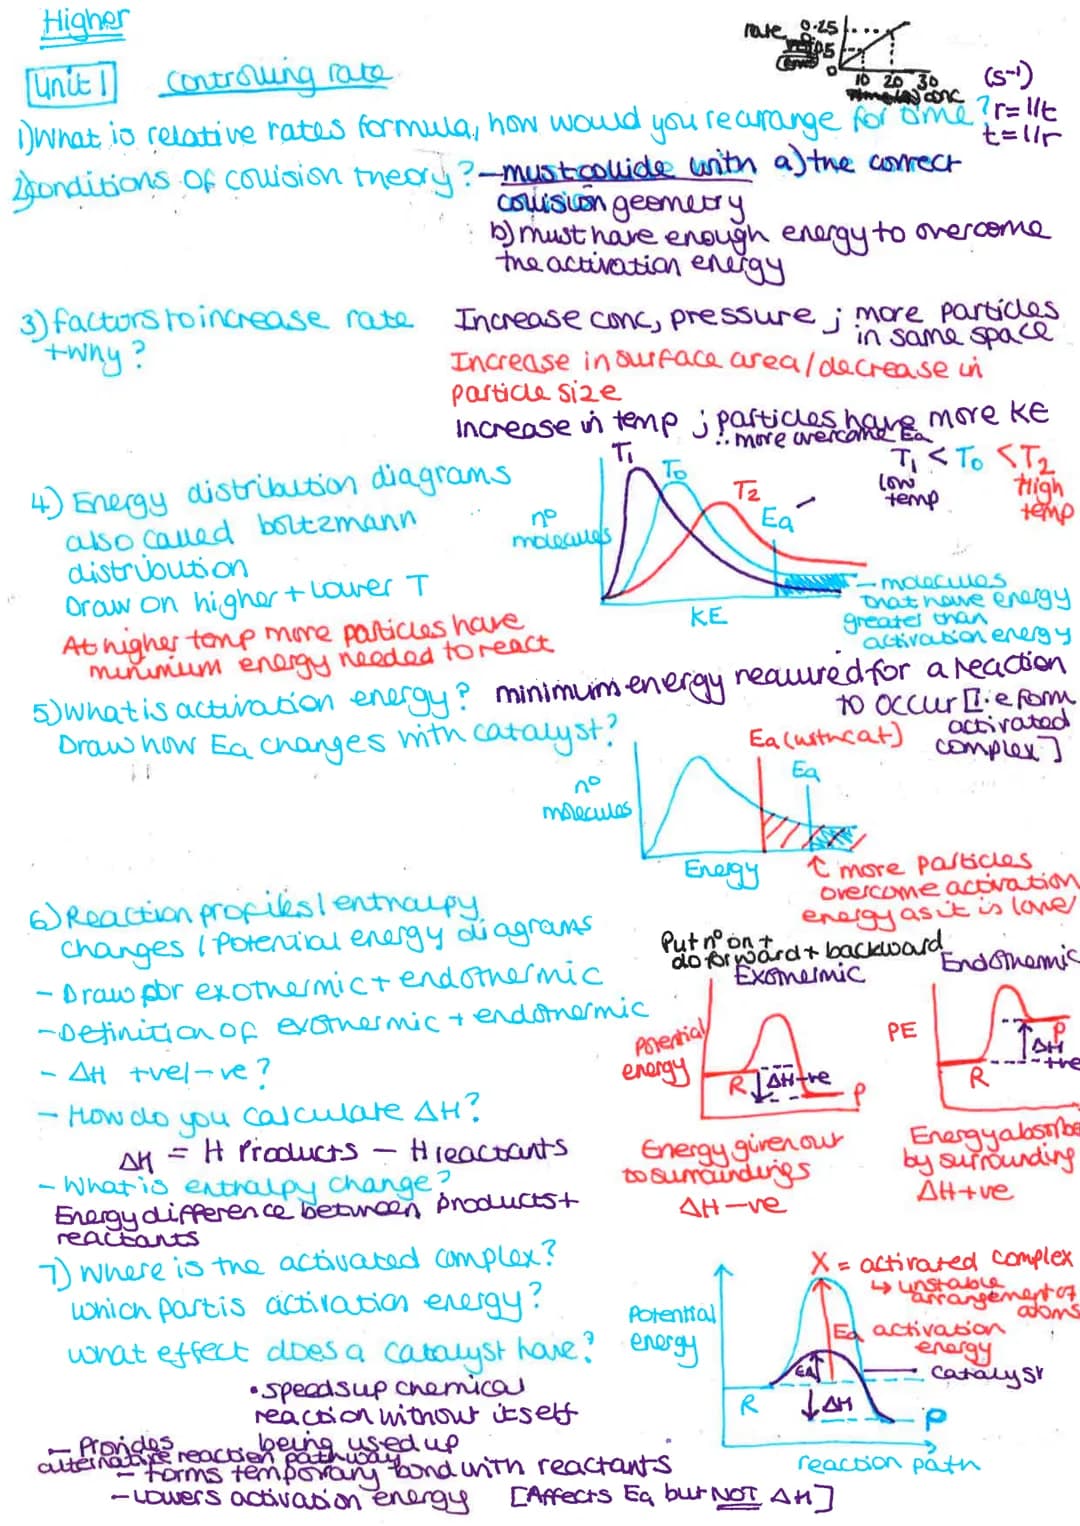 Higher
Unit 1 Controlling rate
rate 0.25
0
10 20 30
conc
(s⁻¹)
1) What is relative rates formula, how would you rearrange for time? r=1/t
t=1/r
2) Conditions of collision theory? - must collide with a) the correct
collision geometry
b) must have enough energy to overcome
the activation energy
3) factors to increase rate
+ why?
Increase conc, pressure ; more particles
in same space
Increase in surface area / decrease in
particle size
Increase in temp ; particles have more KE
∴ more overcome Ea
4) Energy distribution diagrams
also called boltzmann
distribution
Draw on higher + lower T
At higher temp more particles have
minimum energy needed to react
T₁ T₀ T₂ Ea
nº
molecules
KE
T₁ < T₀ < T₂
low
temp
High
temp
- molecules
that have energy
greater than
activation energy
5) What is activation energy? minimum energy required for a reaction
to occur [i.e form
activated
complex]
Draw how Ea changes with catalyst?
Ea (with cat)
Ea
nº
molecules
Energy
↑ more particles
overcome activation
energy as it is lower
6) Reaction profiles / enthalpy
changes / Potential energy diagrams
- Draw for exothermic + endothermic
- Definition of exothermic + endothermic
- ΔH +ve/-ve?
- How do you calculate ΔH?
ΔH = H Products - H reactants
- What is enthalpy change?
Energy difference between products +
reactants
Put nº on +
do forward + backward
Exothermic
Potential
energy
R ΔH-ve P
Energy given out
to surroundings
ΔH -ve
Endothermic
PE
R P
ΔH
+ve
Energy absorbe
by surrounding
ΔH +ve
7) Where is the activated complex?
which part is activation energy?
what effect does a catalyst have?
• speeds up chemical
reaction without itself
being used up
- Provides
alternative reaction pathway
- forms temporary bond with reactants
- lowers activation energy [Affects Ea but NOT ΔH]
X = activated complex
↳ unstable
arrangement of
atoms
Potential
energy
Ea activation
energy
Ea
catalyst
R ΔH P
reaction path